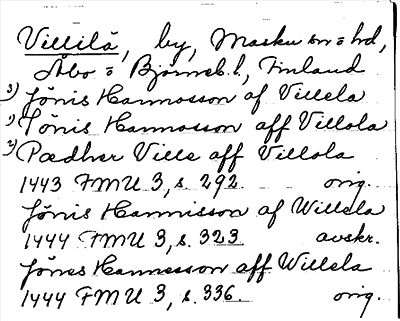 Villilä, by, Masku sn o hd,
Åbo o Björneb. l., Finland
3) Jönis Hannosson af Villela
1) Tönis Hannosson aff Villola
2) Pædher Ville aff Villola
1443 FMU 3, s. 292. orig.
Jönis Hannisson af Willela
1444 FMU 3, s. 323 avskr.
Jönes Hannesson aff Willela
1444 FMU 3, s. 336. orig.